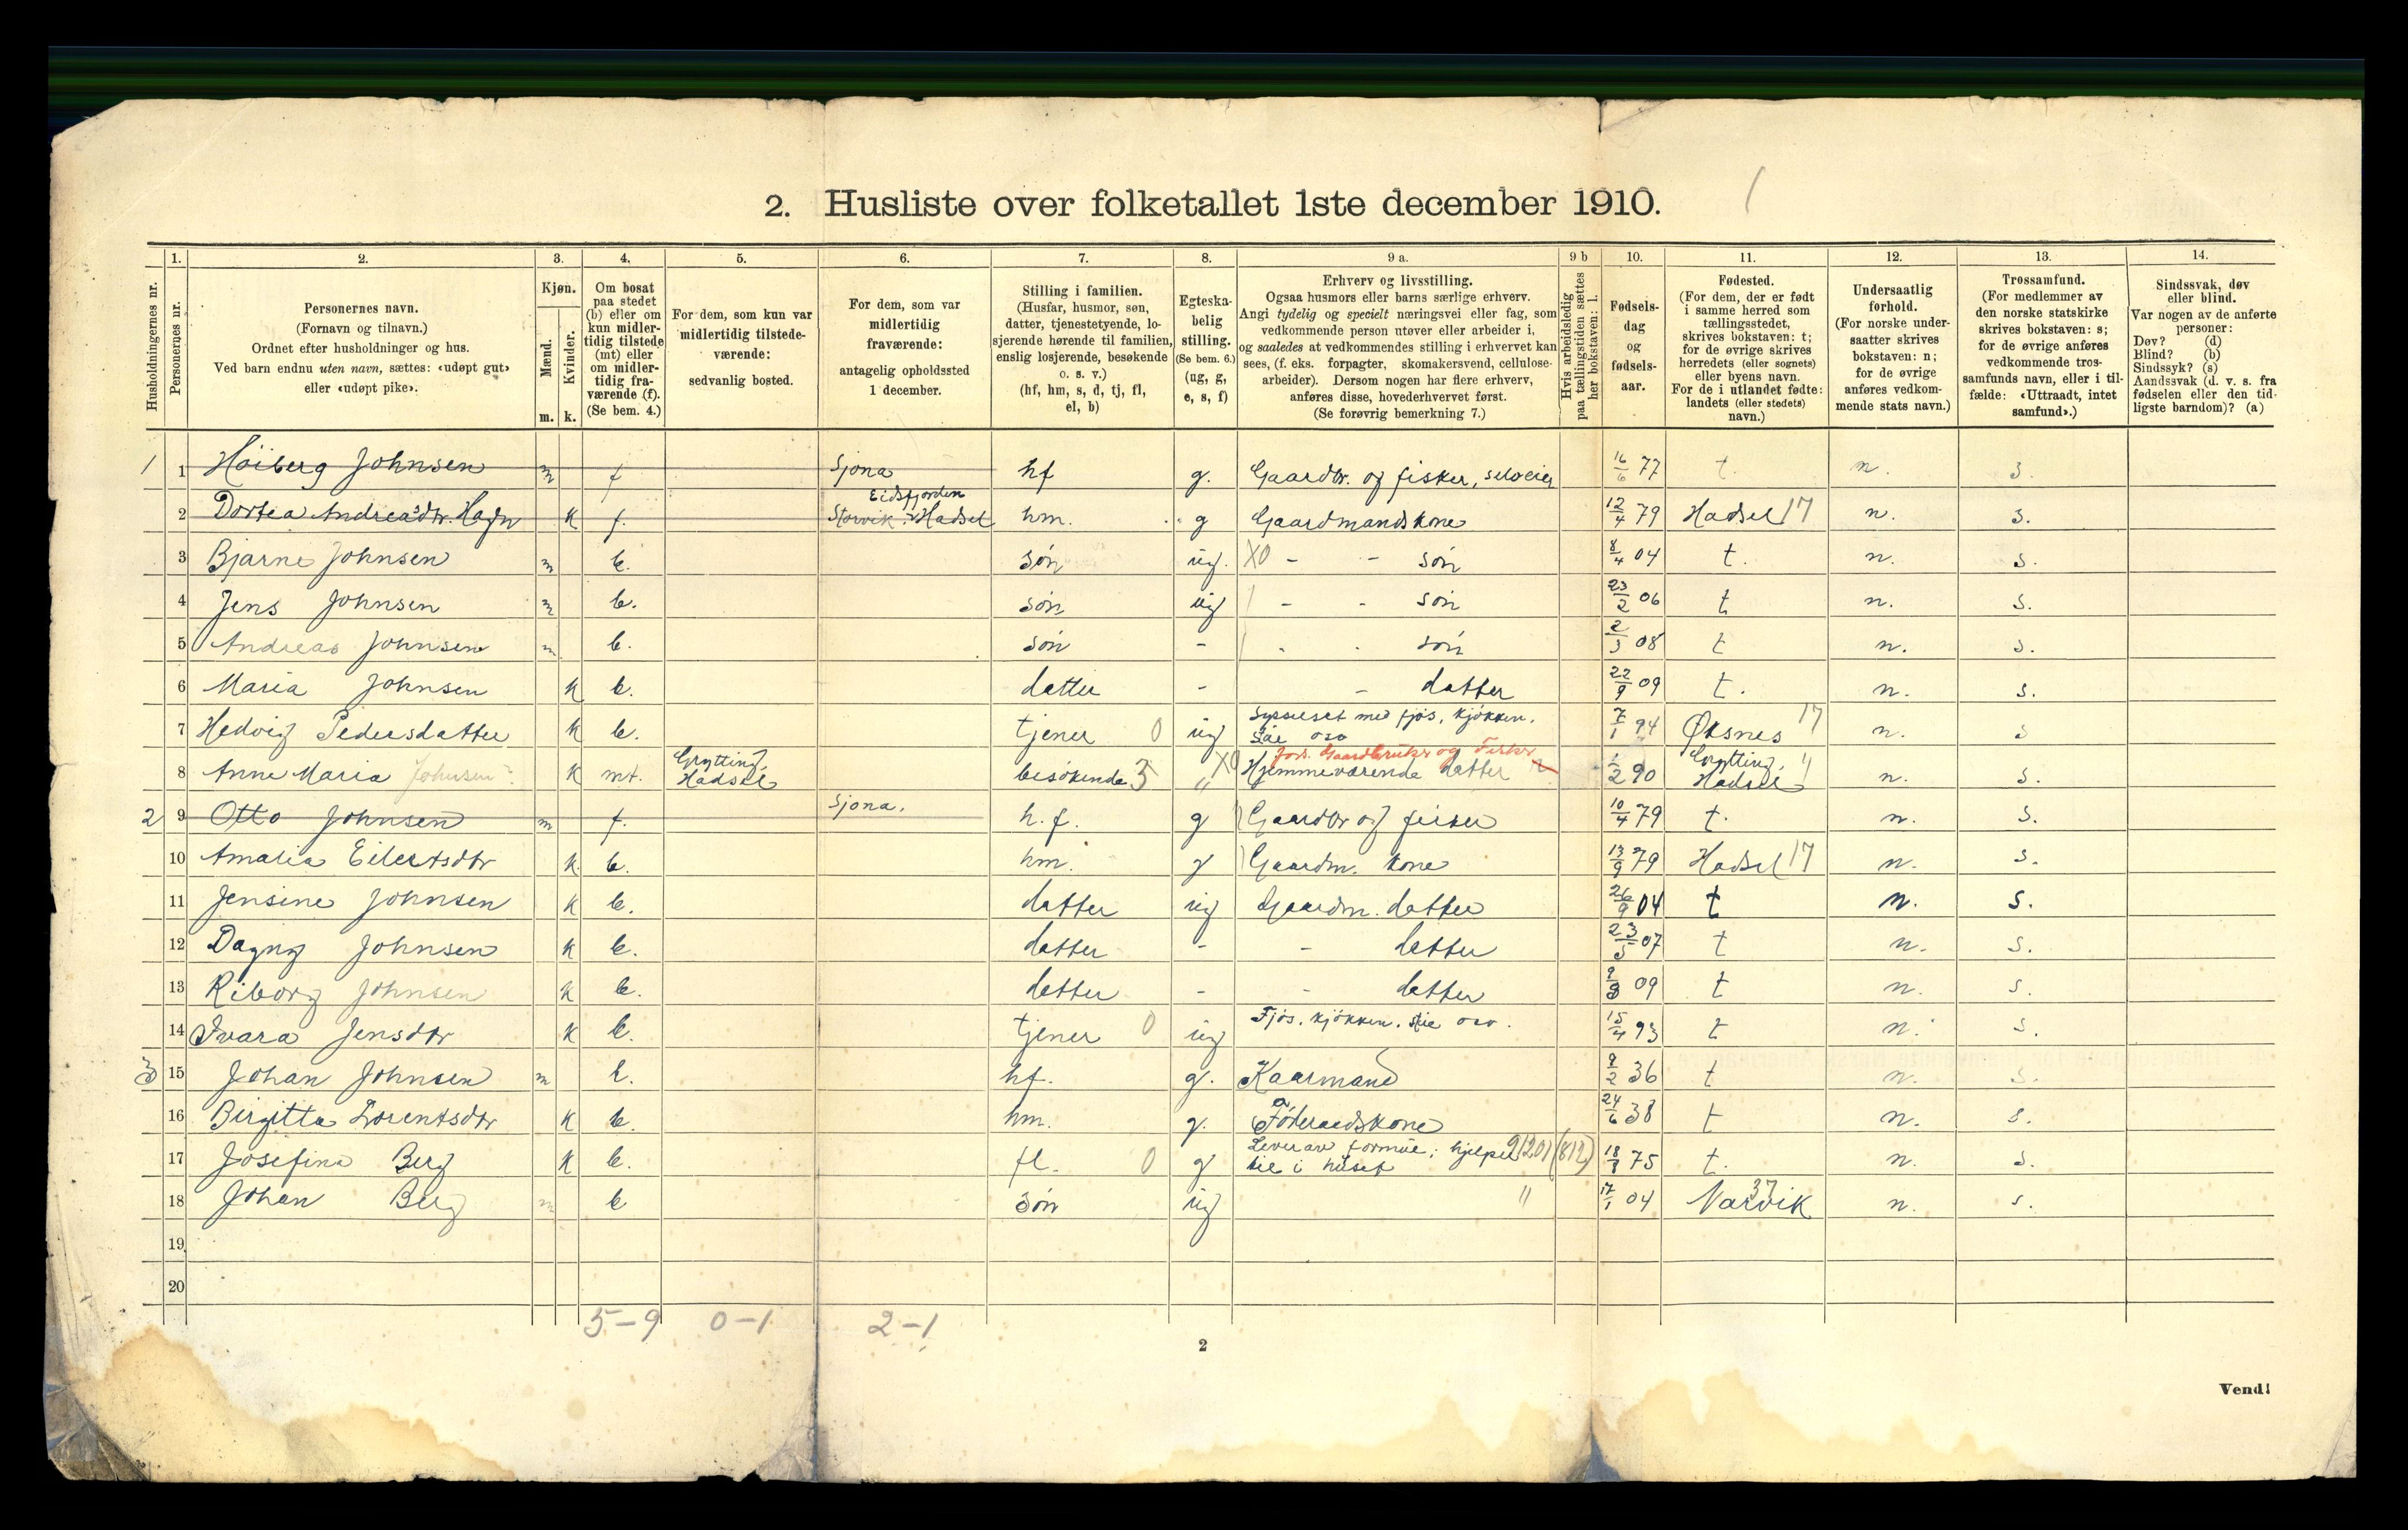 2. Husliste over folketallet 1ste december 1910.
1. 2. 3. 4. 5. 6. 7. 8. 9 a. 9 b 10. 11. 12. 13. 14.
Husholdningernes nr.
Personernes nr.
Personernes navn.
(Fornavn og tilnavn.)
Ordnet efter husholdninger og hus.
Ved barn endnu uten navn, sættes: «udøpt gut»
eller «udøpt pike».
Kjøn.
Mænd.
m.
Kvinder.
k.
Om bosat
paa stedet
(b) eller om
kun midler-
tidig tilstede
(mt) eller
om midler-
tidig fra-
værende (f).
(Se bem. 4.)
For dem, som kun var
midlertidig tilstede-
værende:
sedvanlig bosted.
For dem, som var
midlertidig
fraværende:
antagelig opholdssted
1 december.
Stilling i familien.
(Husfar, husmor, søn,
datter, tjenestetyende, lo-
sjerende hørende til familien,
enslig losjerende, besøkende
o. s. v.)
(hf, hm, s, d, tj, fl,
el, b)
Egteska-
belig
stilling.
(Se bem. 6.)
(ug, g,
e, s, f)
Erhverv og livsstilling.
Ogsaa husmors eller barns særlige erhverv.
Angi tydelig og specielt næringsvei eller fag, som
vedkommende person utøver eller arbeider i,
og saaledes at vedkommendes stilling i erhvervet kan
sees, (f. eks. forpagter, skomakersvend, cellulose-
arbeider). Dersom nogen har flere erhverv,
anføres disse, hovederhvervet først.
(Se forøvrig bemerkning 7.)
Hvis arbeidsledig
paa tællingstiden sættes
her bokstaven: l.
Fødsels-
dag
og
fødsels-
aar.
Fødested.
(For dem, der er født
i samme herred som
tællingsstedet,
skrives bokstaven: t;
for de øvrige skrives
herredets (eller sognets)
eller byens navn.
For de i utlandet fødte:
landets (eller stedets)
navn.)
Undersaatlig
forhold.
(For norske under-
saatter skrives
bokstaven: n;
for de øvrige
anføres vedkom-
mende stats navn.)
Trossamfund.
(For medlemmer av
den norske statskirke
skrives bokstaven: s;
for de øvrige anføres
vedkommende tros-
samfunds navn, eller i til-
fælde: «Uttraadt, intet
samfund».)
Sindssvak, døv
eller blind.
Var nogen av de anførte
personer:
Døv? (d)
Blind? (b)
Sindssyk? (s)
Aandssvak (d. v. s. fra
fødselen eller den tid-
ligste barndom)? (a)
1 1 Höiberg Johnsen m f Sjona hf g. Gaardbr. og fisker, selveier 16/6 77 t. n. s.
2 Dortea Andreasdtr. Hagn k f. Eidsfjorden
Storvik. Hadsel hm. g Gaardmandskone 12/4 79 Hadsel 17 n. s.
3 Bjarne Johnsen m b. sön ug. X0 - - sön 8/4 04 t. n. s.
4 Jens Johnsen m b. sön ug - - sön 23/2 06 t n. s.
5 Andreas Johnsen m b. sön - - - sön 2/3 08 t n. s.
6 Maria Johnsen k b. datter - - datter 22/9 09 t. n. s.
7 Hedvig Pedersdatter k b. tjener 0 ug Sysselset med fjös, kjökken,
oso 7/1 94 Øksnes 17 n. s
8 Anne Maria Johnsen? k mt. Grytting,
Hadsel besökende 3 " X0 Fors. Gaardbruker og Fisker
Hjemmeværende datter 1/2 90 Grytting,
Hadsel n. s.
2 9 Otto Johnsen m f. Sjona. h.f. g Gaardbr og fisker 10/4 79 t. n. s.
10 Amalia Eilertsdtr k b. hm. g Gaardm. kone 13/9 79 Hadsel 17 n. s.
11 Jensine Johnsen k b. datter ug Gaardm. datter 26/9 04 t n. s.
12 Dagny Johnsen k b. datter - - datter 23/5 07 t n. s.
13 Riborg Johnsen k b. datter - - datter 09 t n. s.
14 Svara Jensdtr k b. tjener 0 ug Fjös, kjökken. oso. 15/4 93 t n. s.
3 15 Johan Johnsen m b. hf. g. Kaarmand 36 t n. s.
16 Birgitta Lorentsdtr k b. hm. g. Föderaadskone 24/6 38 t n. s.
17 Josefina Berg k b. fl. 0 g Lever av formue; hjelper
til i huset 18/8 75 t. n. s.
18 Johan Berg m b sön ug " 17/1 04 37
Narvik n. s.
19
20
5-9 0-1 2-1
2
Vend!